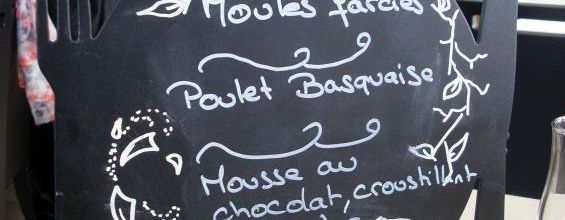 Moules farcies
Poulet Basquaise
Mousse au
chocolat, croustillant